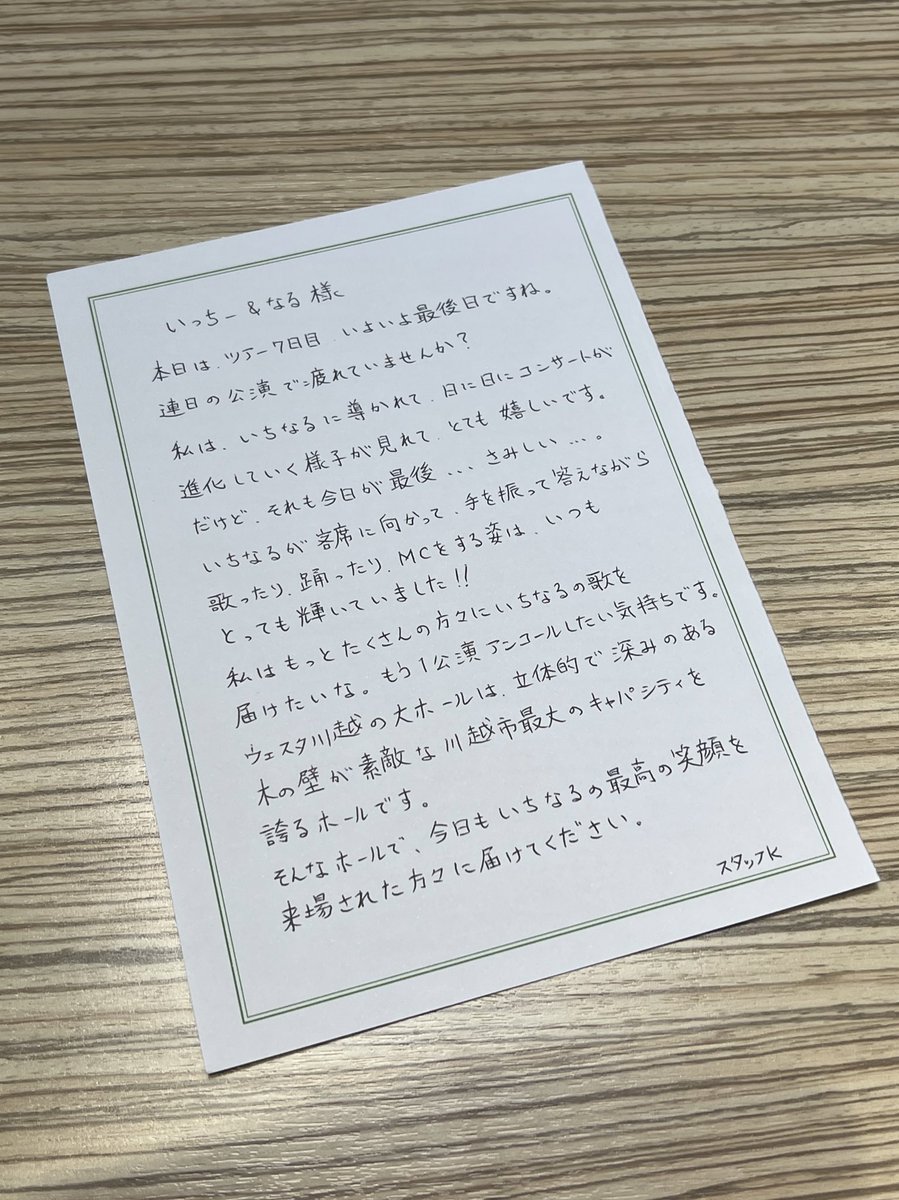 いっちー&なる様
本日は、ツアー7日目、いよいよ最後日ですね。
連日の公演で疲れていませんか?
私は、いちなるに導かれて、日に日にコンサートが
進化していく様子が見れて、とても嬉しいです。
だけど、それも今日が最後...さみしい...。
いちなるが客席に向かって、手を振って答えながら
歌ったり、踊ったり、MCをする姿は、いつも
とっても輝いていました!!
私はもっとたくさんの方々にいちなるの歌を
届けたいな。もう1公演アンコールしたい気持ちです。
ウェスタ川越の大ホールは、立体的で深みのある
木の壁が素敵な川越市最大のキャパシティを
誇るホールです。
そんなホールで、今日もいちなるの最高の笑顔を
来場された方々に届けてください。
スタッフK